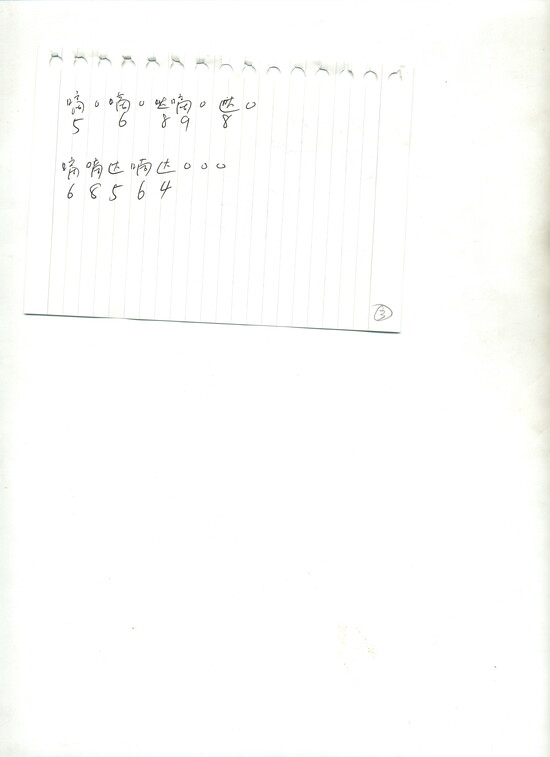 嘀 。 嘀 。 哒 嘀 。 哒 。
5 6 8 9 8
嘀 嘀 达 嘀 达 。 。 。
6 8 5 6 4
③